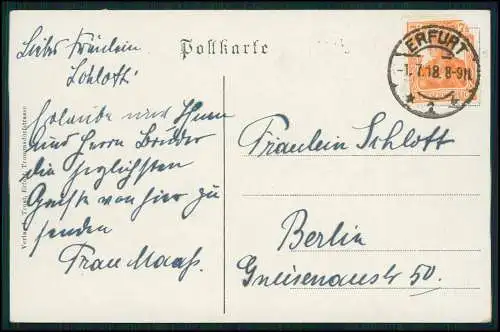 Postkarte
Liebes Fräulein
Schlott!
Erlaube mir Ihnen
und Herrn Bruder
die herzlichsten
Grüße von hier zu
senden
Frau Maaß.
ERFURT
-1.7.18. 8-9N.
Fräulein Schlott
Berlin
Gneisenaustr 50.
Verlag Trommsdorffstrasse